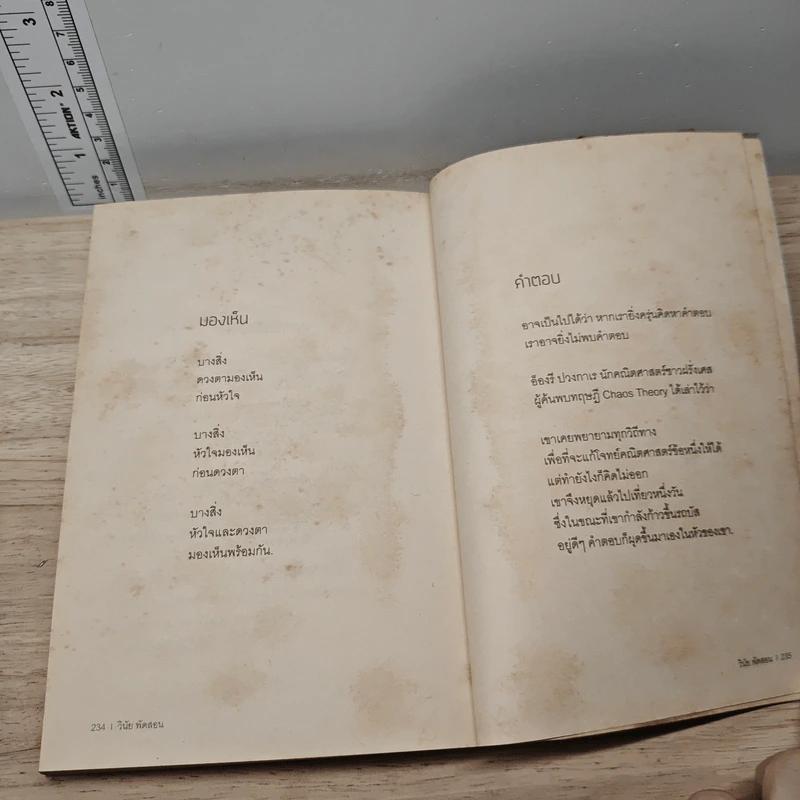 3
2
1
AKTION
inches
8
7
6
5
4
3
2
1
มองเห็น
บางสิ่ง
ดวงตามองเห็น
ก่อนหัวใจ
บางสิ่ง
หัวใจมองเห็น
ก่อนดวงตา
บางสิ่ง
หัวใจและดวงตา
มองเห็นพร้อมกัน.
234 | วินัย พัดสอน
คำตอบ
อาจเป็นไปได้ว่า หากเรายิ่งครุ่นคิดหาคำตอบ
เราอาจยิ่งไม่พบคำตอบ
อ็องรี ปวงกาเร นักคณิตศาสตร์ชาวฝรั่งเศส
ผู้ค้นพบทฤษฎี Chaos Theory ได้เล่าไว้ว่า
เขาเคยพยายามทุกวิถีทาง
เพื่อที่จะแก้โจทย์คณิตศาสตร์ข้อหนึ่งให้ได้
แต่ทำยังไงก็คิดไม่ออก
เขาจึงหยุดแล้วไปเที่ยวหนึ่งวัน
ซึ่งในขณะที่เขากำลังก้าวขึ้นรถบัส
อยู่ดีๆ คำตอบก็ผุดขึ้นมาเองในหัวของเขา.
วินัย พัดสอน | 235